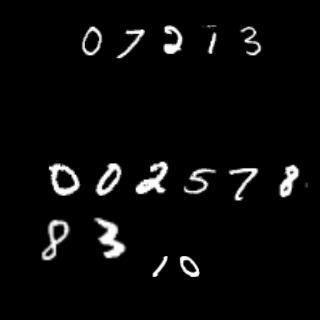 07213
002578
83
10